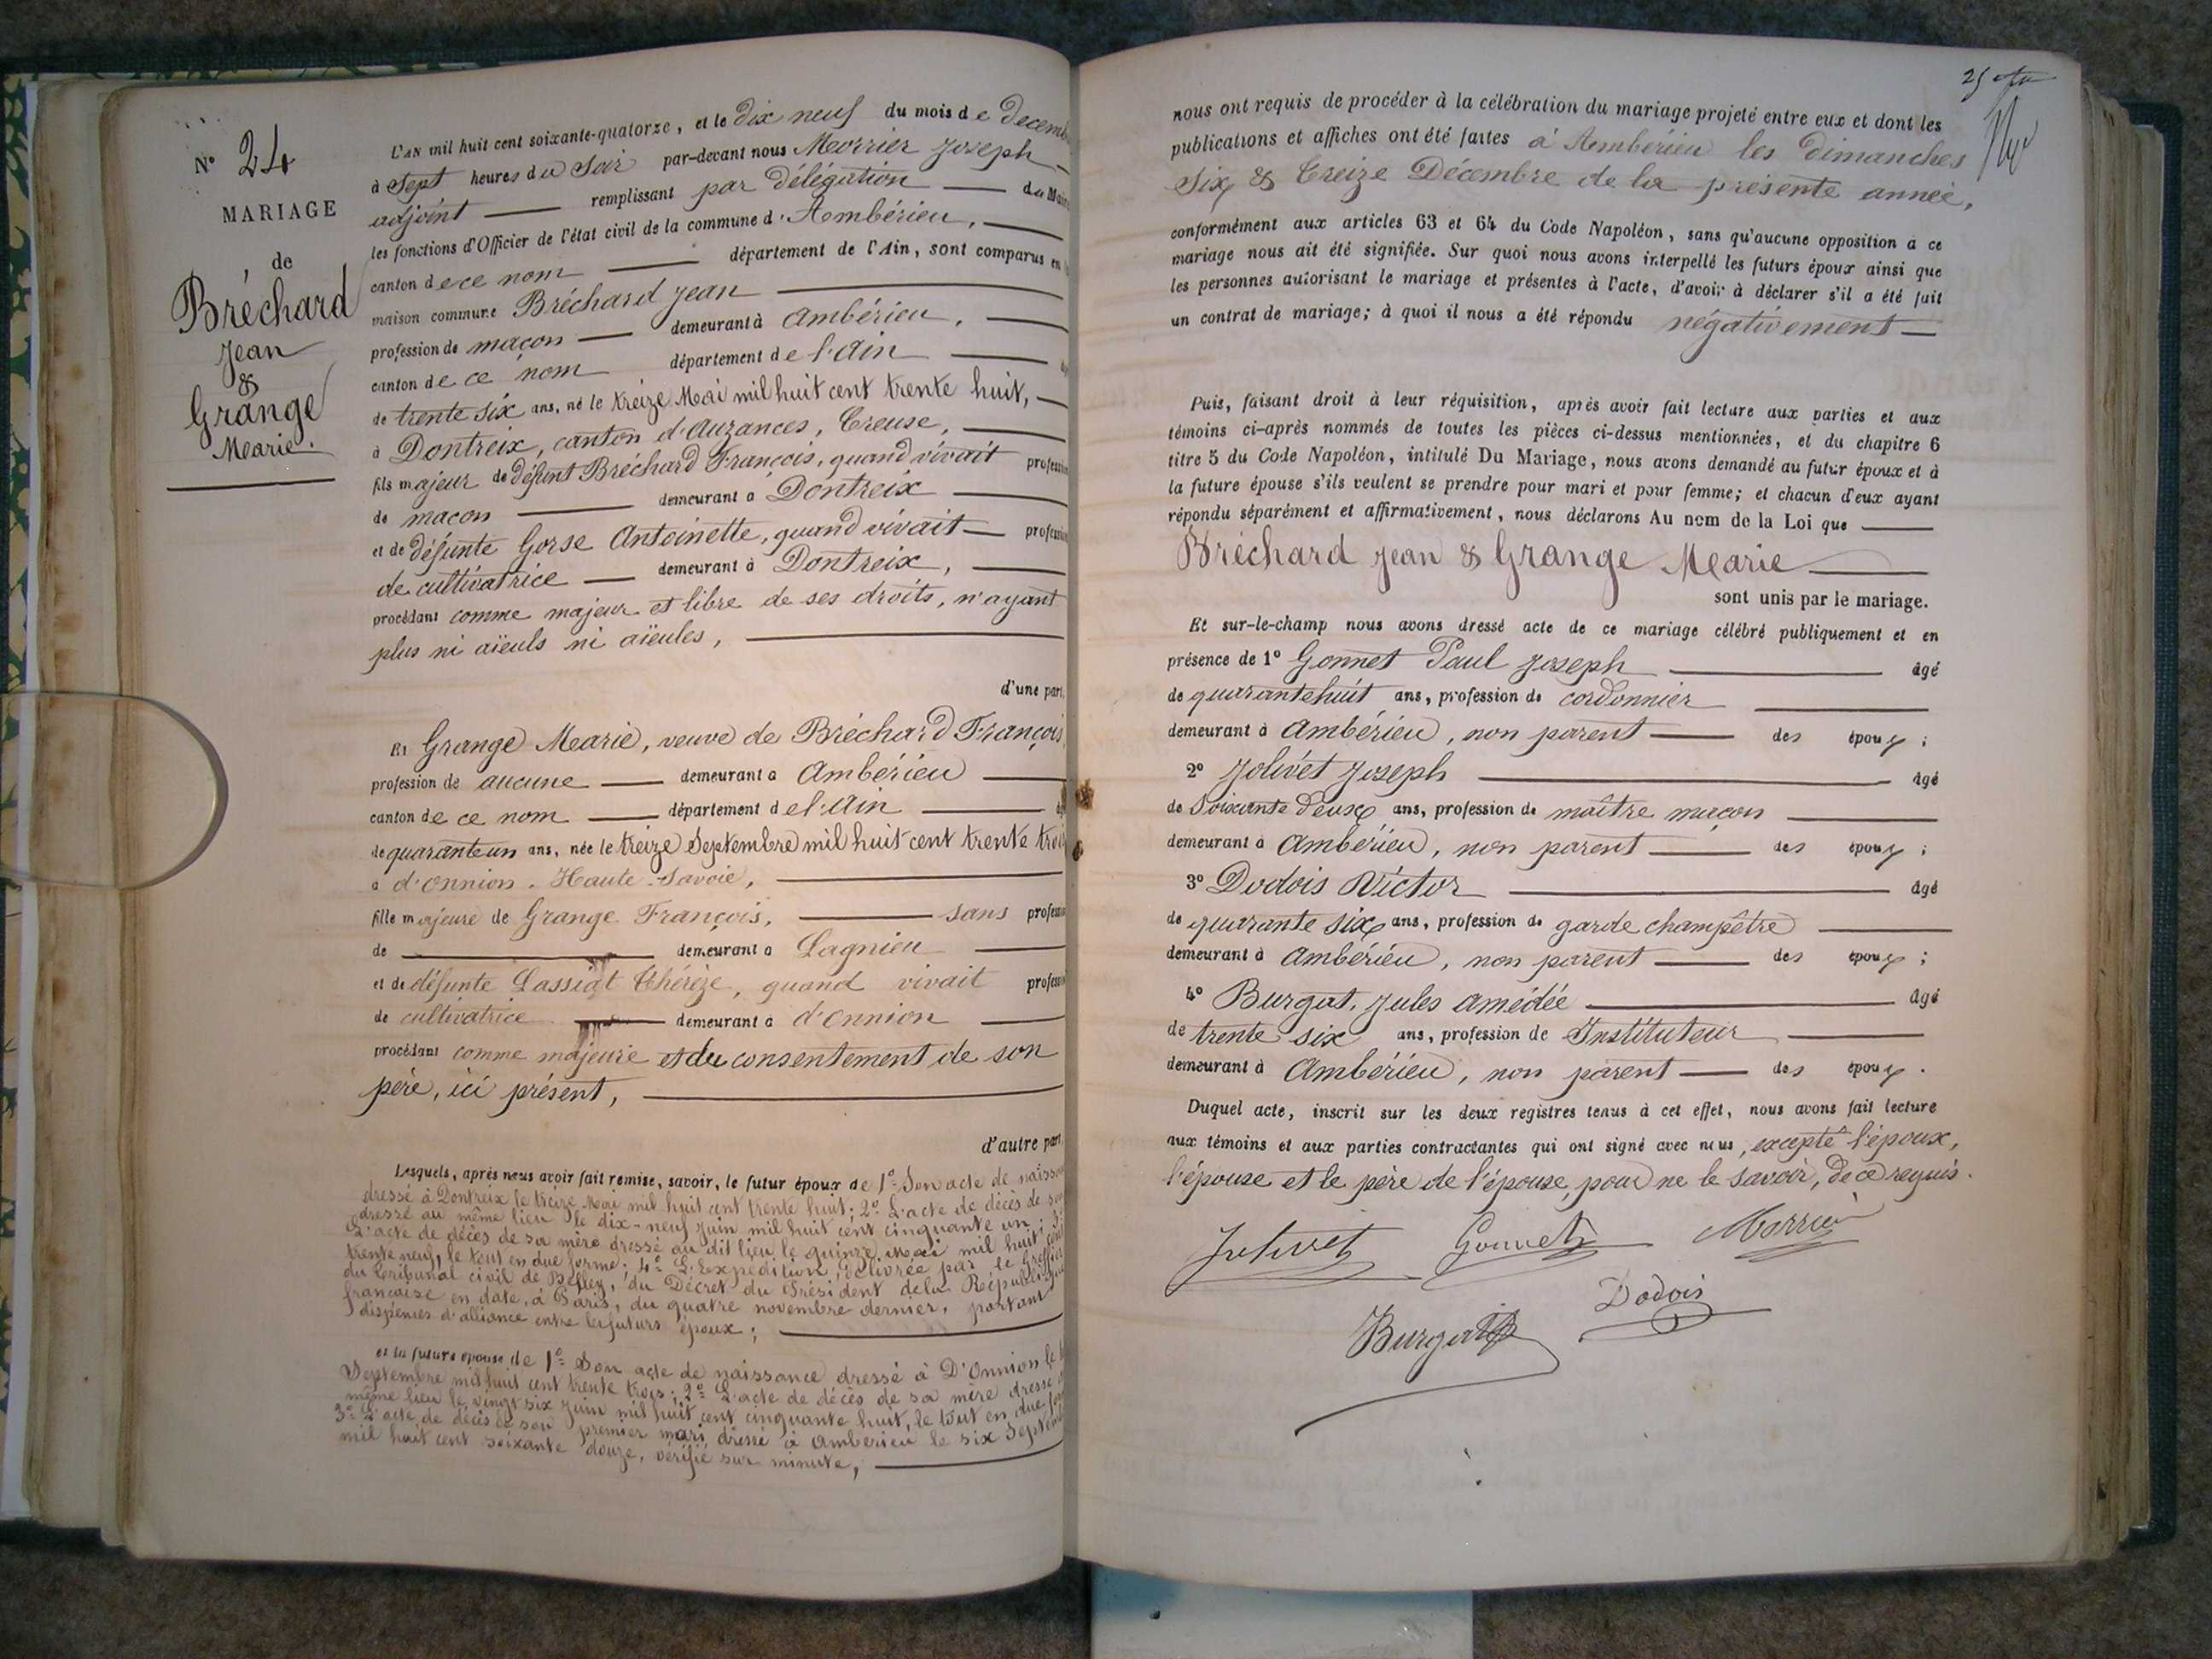 N° 24
MARIAGE
de
Bréchard
Jean
&
Grange
Marie.
L'AN mil huit cent soixante-quatorze, et le dix neuf du mois de Décemb
à Sept heures du Soir par-devant nous Morrier Joseph
adjoint remplissant par délégation du Maire
les fonctions d'Officier de l'état civil de la commune d'Ambérieu,
canton de ce nom département de l'Ain, sont comparus en
maison commune Bréchard Jean
profession de maçon demeurant à Ambérieu,
canton de ce nom département de l'Ain
de trente six ans, né le treize Mai mil huit cent trente huit,
à Dontreix, canton d'Auzances, Creuse,
fils majeur de défunt Bréchard François, quand vivait profession
de maçon demeurant à Dontreix
et de défunte Gorse Antoinette, quand vivait profession
de cultivatrice demeurant à Dontreix,
procédant comme majeur et libre de ses droits, n'ayant
plus ni aïeuls ni aïeules,
d'une part,
Et Grange Marie, veuve de Bréchard François,
profession de aucune demeurant à Ambérieu
canton de ce nom département de l'Ain
de quarante un ans, née le treize Septembre mil huit cent trente trois
à d'Onnion. Haute-Savoie,
fille majeure de Grange François, sans profession
de demeurant à Lagnieu
et de défunte Lassiat Thérèze, quand vivait profession
de cultivatrice demeurant à d'Onnion
procédant comme majeure et du consentement de son
père, ici présent,
d'autre part.
Lesquels, après nous avoir fait remise, savoir, le futur époux de 1° Son acte de naissan
dressé à Dontreix le treize Mai mil huit cent trente huit; 2° L'acte de décès de son
dressé au même lieu le dix-neuf Juin mil huit cent cinquante un;
L'acte de décès de sa mère dressé au dit lieu le quinze Mai mil huit cent
trente neuf, le tout en due forme; 4° L'Expédition, délivrée par le Greffier
du Tribunal civil de Belley, du Décret du Président de la République
française en date, à Paris, du quatre novembre dernier, portant
dispenses d'alliance entre les futurs époux;
et la future épouse de 1° Son acte de naissance dressé à D'Onnion le
Septembre mil huit cent trente trois; 2° L'acte de décès de sa mère dressé
même lieu le vingt six Juin mil huit cent cinquante huit, le tout en due forme
3° L'acte de décès de son premier mari, dressé à Ambérieu le six Septembre
mil huit cent soixante douze, vérifié sur minute,
25
nous ont requis de procéder à la célébration du mariage projeté entre eux et dont les
publications et affiches ont été faites à Ambérieu les dimanches
Six & Treize Décembre de la présente année,
conformément aux articles 63 et 64 du Code Napoléon, sans qu'aucune opposition à ce
mariage nous ait été signifiée. Sur quoi nous avons interpellé les futurs époux ainsi que
les personnes autorisant le mariage et présentes à l'acte, d'avoir à déclarer s'il a été fait
un contrat de mariage; à quoi il nous a été répondu négativement
Puis, faisant droit à leur réquisition, après avoir fait lecture aux parties et aux
témoins ci-après nommés de toutes les pièces ci-dessus mentionnées, et du chapitre 6
titre 5 du Code Napoléon, intitulé Du Mariage, nous avons demandé au futur époux et à
la future épouse s'ils veulent se prendre pour mari et pour femme; et chacun d'eux ayant
répondu séparément et affirmativement, nous déclarons Au nom de la Loi que
Bréchard Jean & Grange Marie
sont unis par le mariage.
Et sur-le-champ nous avons dressé acte de ce mariage célébré publiquement et en
présence de 1° Gonnet Paul Joseph âgé
de quarante huit ans, profession de cordonnier
demeurant à Ambérieu, non parent des époux;
2° Jolivet Joseph âgé
de Soixante deux ans, profession de maître maçon
demeurant à Ambérieu, non parent des époux;
3° Dodois Victor âgé
de quarante six ans, profession de garde champêtre
demeurant à Ambérieu, non parent des époux;
4° Burgat, Jules Amédée âgé
de trente six ans, profession de Instituteur
demeurant à Ambérieu, non parent des époux.
Duquel acte, inscrit sur les deux registres tenus à cet effet, nous avons fait lecture
aux témoins et aux parties contractantes qui ont signé avec nous, excepté l'époux,
l'épouse et le père de l'épouse, pour ne le savoir, de ce requis.
Jolivet Gonnet Morrier
Dodois
Burgat